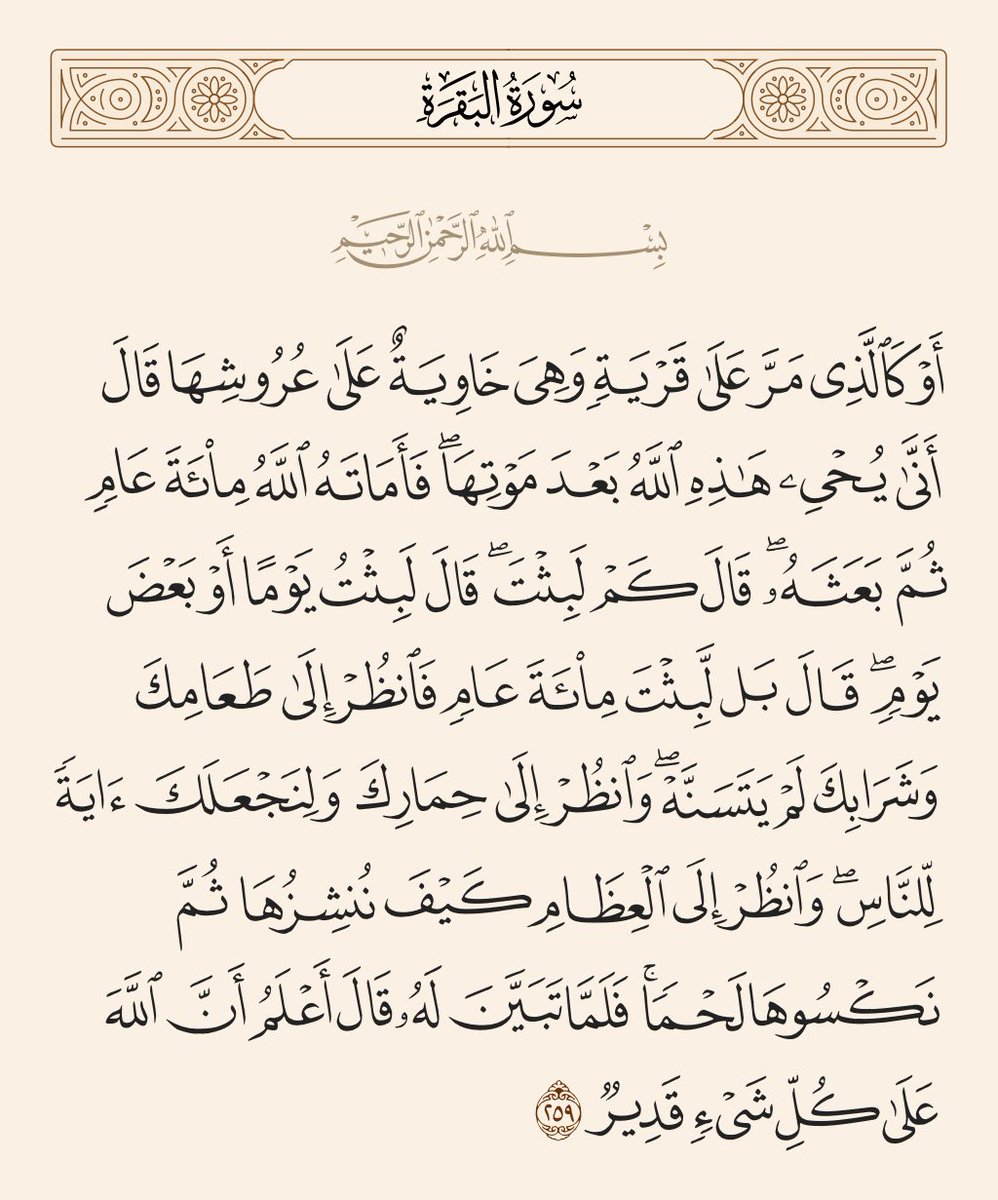 سُورَةُ البَقَرَةِ
بِسْمِ ٱللَّهِ ٱلرَّحْمَٰنِ ٱلرَّحِيمِ
أَوْ كَٱلَّذِى مَرَّ عَلَىٰ قَرْيَةٍ وَهِىَ خَاوِيَةٌ عَلَىٰ عُرُوشِهَا قَالَ
أَنَّىٰ يُحْىِۦ هَـٰذِهِ ٱللَّهُ بَعْدَ مَوْتِهَا ۖ فَأَمَاتَهُ ٱللَّهُ مِا۟ئَةَ عَامٍ
ثُمَّ بَعَثَهُۥ ۖ قَالَ كَمْ لَبِثْتَ ۖ قَالَ لَبِثْتُ يَوْمًا أَوْ بَعْضَ
يَوْمٍ ۖ قَالَ بَل لَّبِثْتَ مِا۟ئَةَ عَامٍ فَٱنظُرْ إِلَىٰ طَعَامِكَ
وَشَرَابِكَ لَمْ يَتَسَنَّهْ ۖ وَٱنظُرْ إِلَىٰ حِمَارِكَ وَلِنَجْعَلَكَ ءَايَةً
لِّلنَّاسِ ۖ وَٱنظُرْ إِلَى ٱلْعِظَامِ كَيْفَ نُنشِزُهَا ثُمَّ
نَكْسُوهَا لَحْمًا ۚ فَلَمَّا تَبَيَّنَ لَهُۥ قَالَ أَعْلَمُ أَنَّ ٱللَّهَ
عَلَىٰ كُلِّ شَىْءٍ قَدِيرٌ ٢٥٩